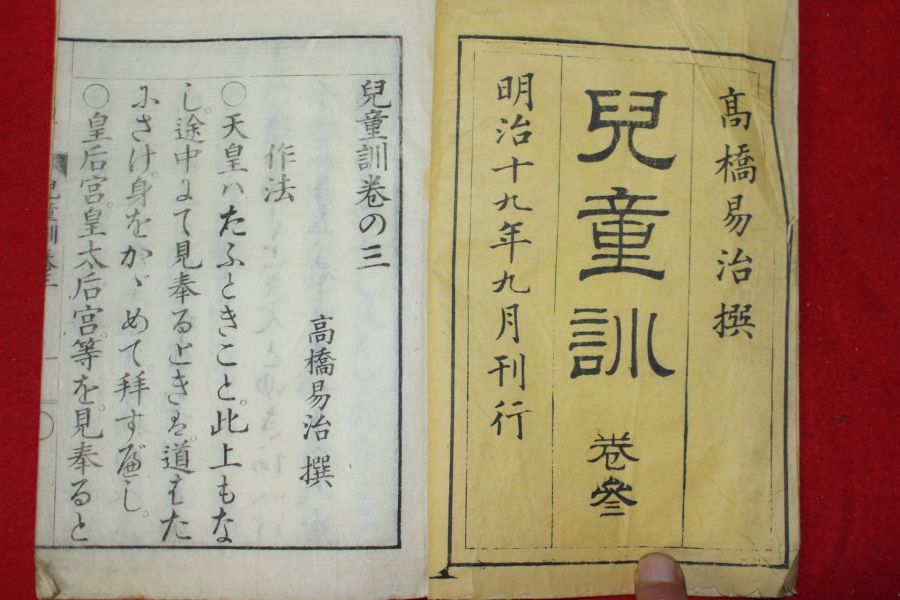 高橋易治撰
兒童訓
卷叄
明治十九年九月刊行
兒童訓巻の三
高橋易治撰
作法
〇天皇ハたふときこと。此上もな
し。途中にて見奉るときは。道はた
にさけ。身をかゞめて。拜すべし。
〇皇后宮。皇太后宮。等を。見奉ると
兒童訓